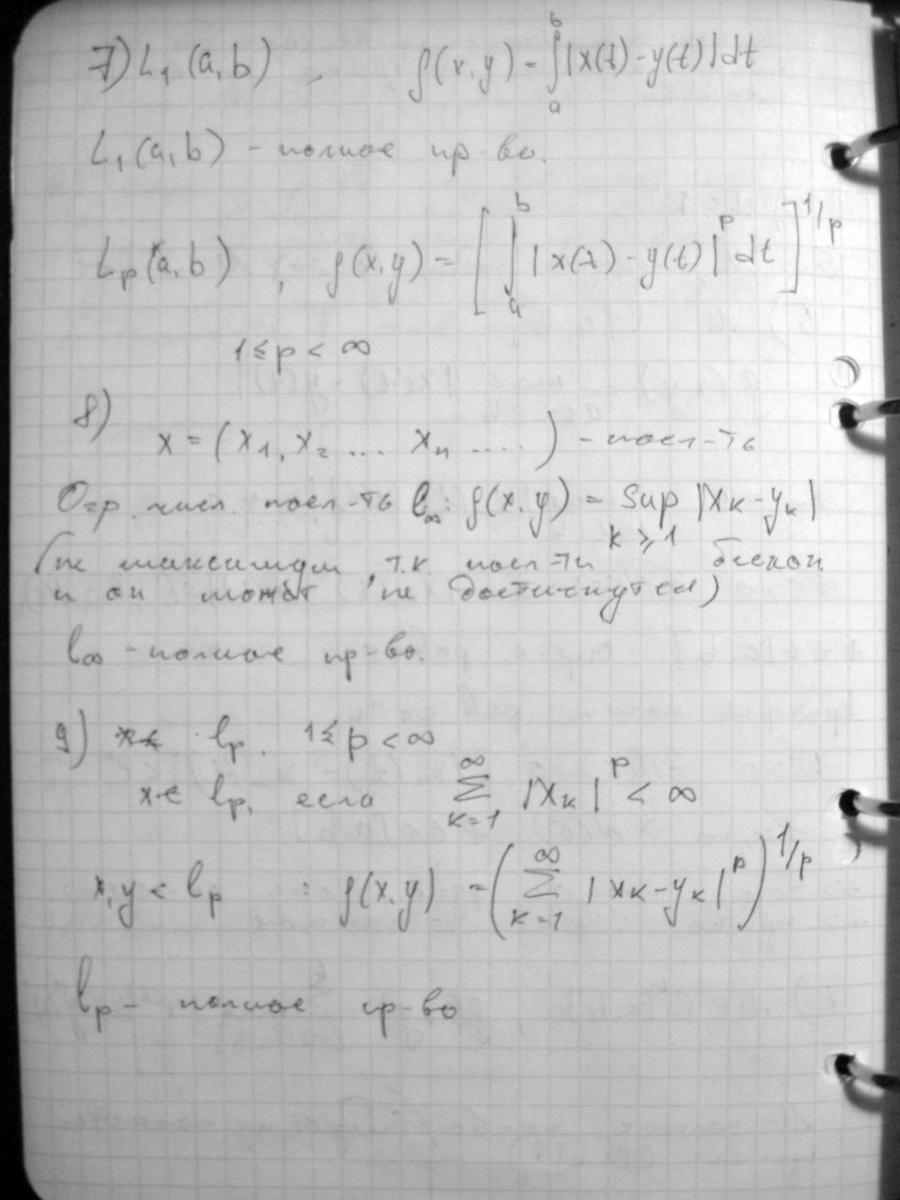 7) L₁ (a, b) , ρ(x, y) = ∫ₐᵇ |x(t) - y(t)| dt
L₁(a, b) - полное пр-во.
Lₚ (a, b) , ρ(x, y) = [ ∫ₐᵇ |x(t) - y(t)|ᵖ dt ]^1/p
1 ≤ p < ∞
8)
x = (x₁, x₂ ... xₙ ....) - посл-ть
Огр. числ. посл-ть l∞ : ρ(x, y) = sup |xₖ - yₖ|
k ≥ 1
(не максимум, т.к посл-ти бескон.
и он может не достигнутся)
l∞ - полное пр-во.
9) lₚ. 1 ≤ p < ∞
x ∈ lₚ, если ∑_{k=1}^∞ |xₖ|ᵖ < ∞
x, y ∈ lₚ : ρ(x, y) = ( ∑_{k=1}^∞ |xₖ - yₖ|ᵖ )^1/p
lₚ - полное пр-во